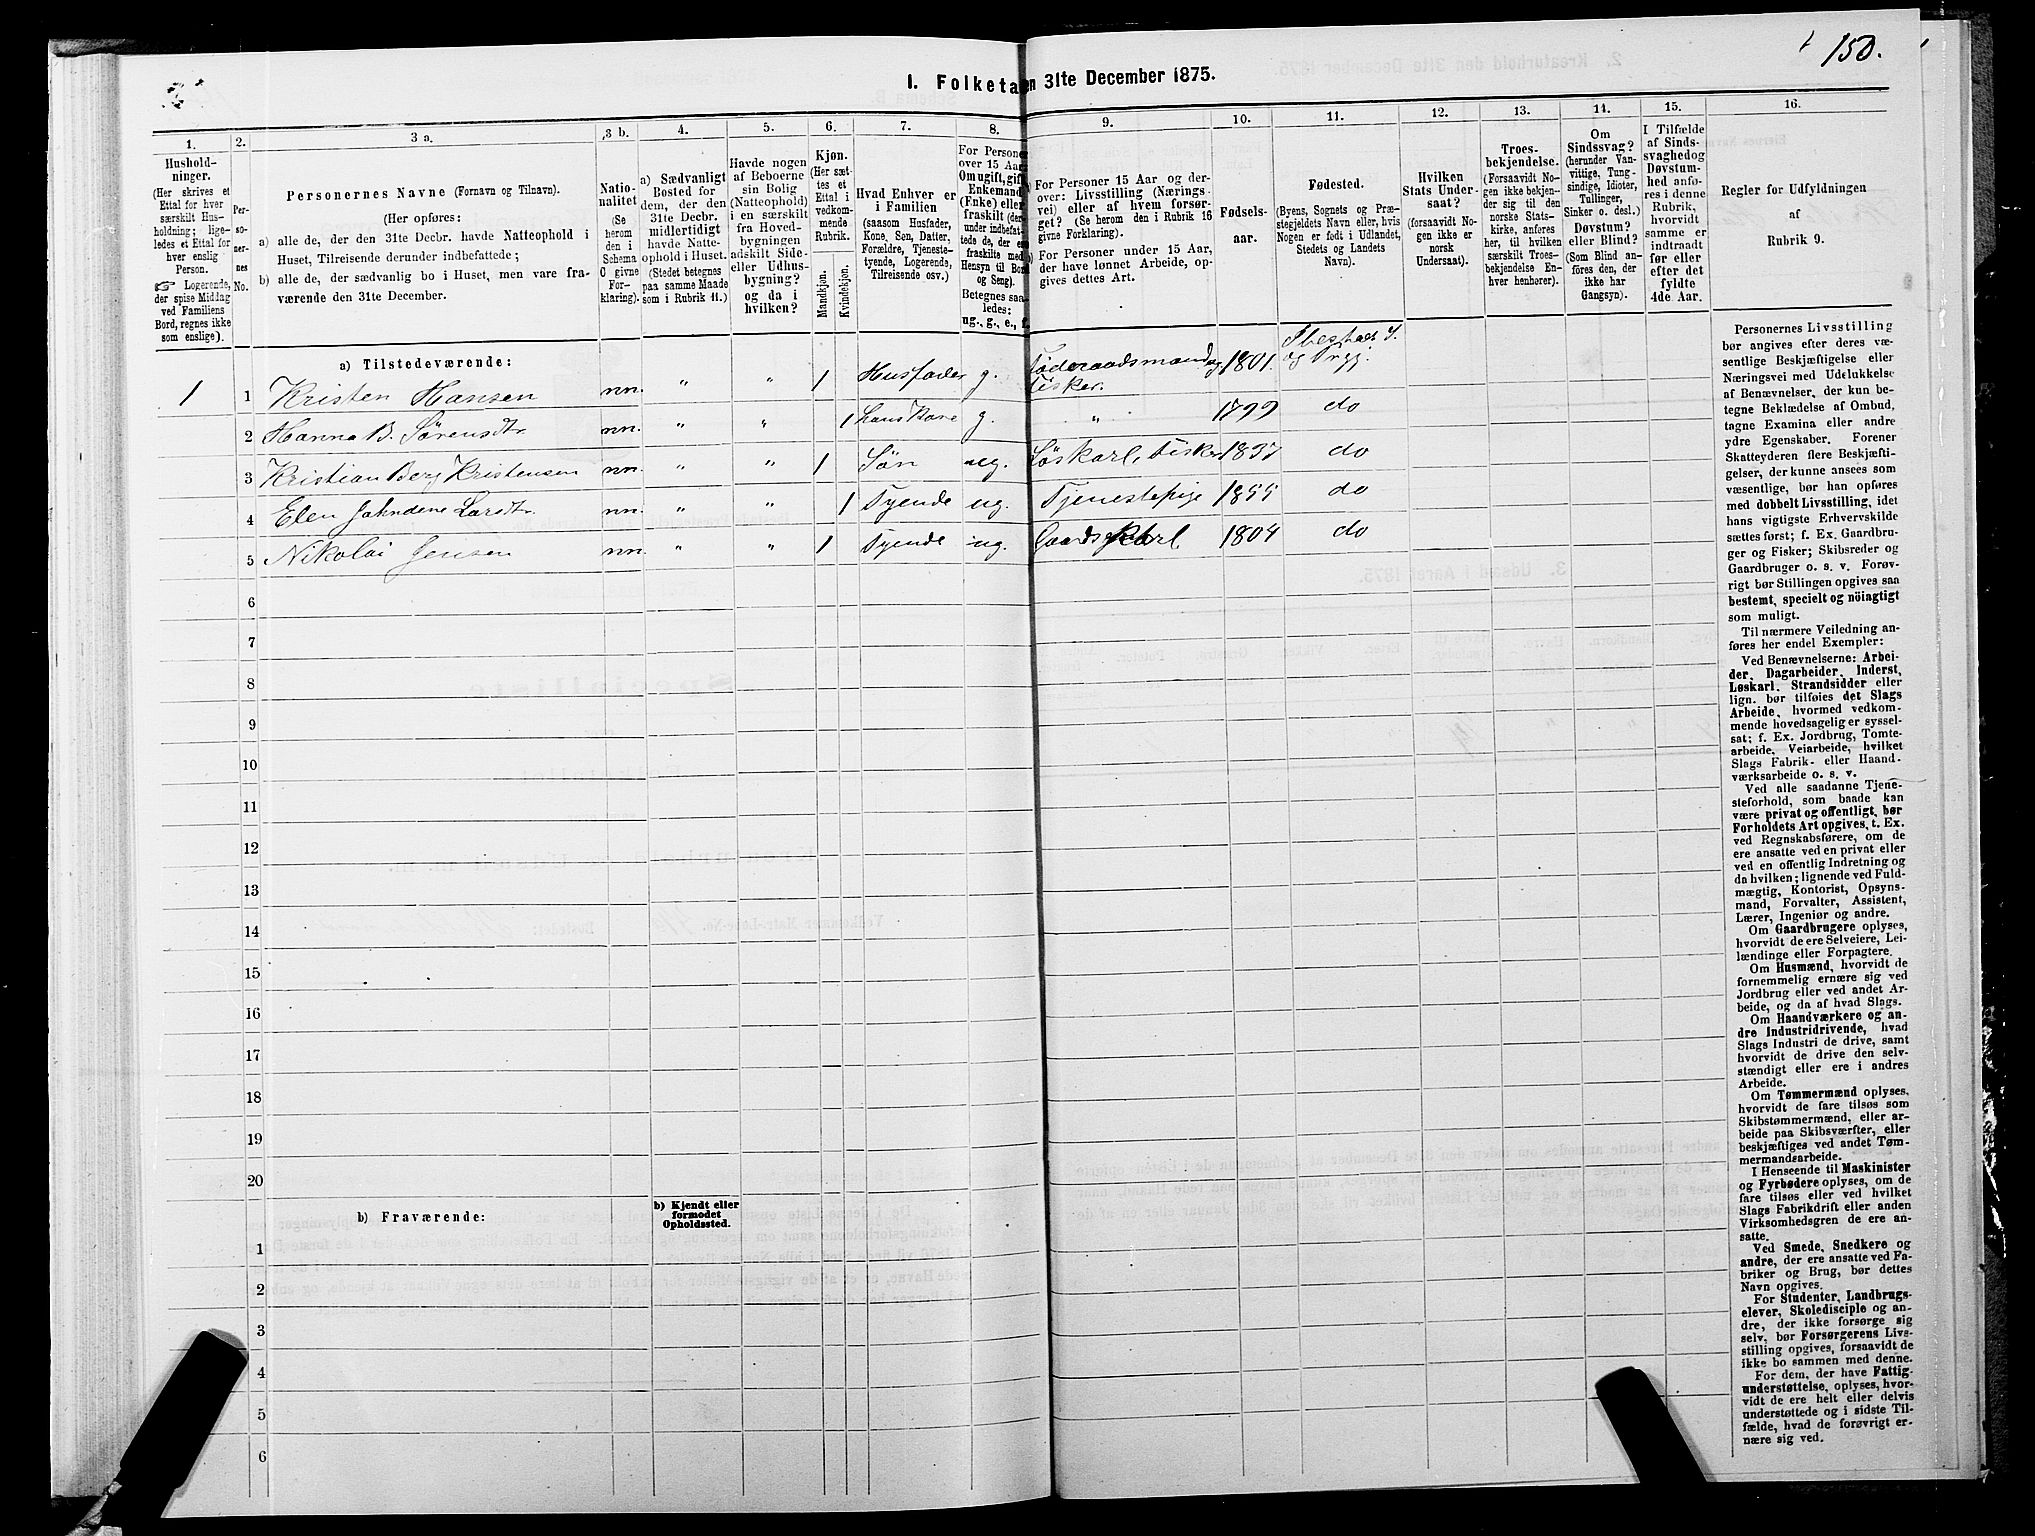 150.
I. Folketa en 31te December 1875.
1. 2. 3 a. 3 b. 4. 5. 6. 7. 8. 9. 10. 11. 12. 13. 14. 15. 16.
Hushold-
ninger.
(Her skrives et
Ettal for hver
særskilt Hus-
holdning; lige-
ledes et Ettal for
hver enslig
Person.
☞ Logerende,
der spise Middag
ved Familiens
Bord, regnes ikke
som enslige).
Per-
so-
ner-
nes
No.
Personernes Navne (Fornavn og Tilnavn).
(Her opføres:
a) alle de, der den 31te Decbr. havde Natteophold i
Huset, Tilreisende derunder indbefattede;
b) alle de, der sædvanlig bo i Huset, men vare fra-
værende den 31te December.
Natio-
nalitet
(Se
herom
den i
Schema
C givne
For-
klaring).
a) Sædvanligt
Bosted for
dem, der den
31te Decbr.
midlertidigt
havde Natte-
ophold i Huset.
(Stedet betegnes
paa samme Maade
som i Rubrik 11.)
Havde nogen
af Beboerne
sin Bolig
(Natteophold)
i en særskilt
fra Hoved-
bygningen
adskilt Side-
eller Udhus-
bygning?
og da i
hvilken?
Kjøn.
(Her sæt-
tes et
Ettal i
vedkom-
mende
Rubrik.
Mandkjøn.
Kvindekjøn.
Hvad Enhver er
i Familien
(saasom Husfader,
Kone, Søn, Datter,
Forældre, Tjeneste-
tyende, Logerende,
Tilreisende osv.)
For Personer
over 15 Aar
Om ugift, gift
Enkemand
(Enke) eller
fraskilt (der-
under indbefat-
tede de, der er
fraskilte med
Hensyn til Bord
og Seng).
Betegnes saa-
ledes:
ug., g., e., f.
a) For Personer 15 Aar og der-
over: Livsstilling (Nærings-
vei) eller af hvem forsør-
get? (Se herom den i Rubrik 16
givne Forklaring).
b) For Personer under 15 Aar,
der have lønnet Arbeide, op-
gives dettes Art.
Fødsels-
aar.
Fødested.
(Byens, Sognets og Præ-
stegjeldets Navn eller, hvis
Nogen er født i Udlandet,
Stedets og Landets
Navn).
Hvilken
Stats Under-
saat?
(forsaavidt No-
gen ikke er
norsk
Undersaat).
Troes-
bekjendelse.
(Forsaavidt No-
gen ikke bekjen-
der sig til den
norske Stats-
kirke, anføres
her, til hvilken
særskilt Troes-
bekjendelse En-
hver henhører).
Om
Sindssvag?
(herunder Van-
vittige, Tung-
sindige, Idioter,
Tullinger,
Sinker o. desl.)
Døvstum?
eller Blind?
(Som Blind an-
føres den, der
ikke har
Gangsyn).
I Tilfælde
af Sinds-
svaghed og
Døvstum-
hed anfø-
res i denne
Rubrik,
hvorvidt
samme er
indtraadt
før eller
efter det
fyldte
4de Aar.
Regler for Udfyldningen
af
Rubrik 9.
a) Tilstedeværende:
1 1 Kristen Hansen nn. " " 1 Husfader g. Føderaadsmand og Fisker. 1801. Ibestad S. og Prgj.
2 Hanna B. Sørensdtr. nn. " " 1 hans Kone g. " 1799 do
3 Kristian Berg Kristensen nn. " " 1 Søn ug. Løskarl, Fisker 1837 do
4 Elen Larsdtr. nn. " " 1 Tyende ug. Tjenestepige 1855 do
5 Nikolai Jensen nn. " " 1 Tyende ug. Gaardskarl 1804 do
6
7
8
9
10
11
12
13
14
15
16
17
18
19
20
b) Fraværende:
b) Kjendt eller
formodet
Opholdssted.
1
2
3
4
5
6
Personernes Livsstilling
bør angives efter deres væ-
sentlige Beskjæftigelse eller
Næringsvei med Udelukkelse
af Benævnelser, der kun be-
tegne Beklædelse af Ombud,
tagne Examina eller andre
ydre Egenskaber. Forener
Skatteyderen flere Beskjæfti-
gelser, der kunne ansees som
væsentlige, bør han opføres
med dobbelt Livsstilling, idet
hans vigtigste Erhvervskilde
sættes først; f. Ex. Gaardbru-
ger og Fisker; Skibsreder og
Gaardbruger o. s. v. Forøv-
rigt bør Stillingen opgives saa
bestemt, specielt og nöiagtigt
som muligt.
Til nærmere Veiledning an-
føres her endel Exempler:
Ved Benævnelserne: Arbei-
der, Dagarbeider, Inderst,
Løskarl, Strandsidder eller
lign. bør tilføies det Slags
Arbeide, hvormed vedkom-
mende hovedsagelig er syssel-
sat; f. Ex. Jordbrug, Tomte-
arbeide, Veiarbeide, hvilket
Slags Fabrik- eller Haand-
værksarbeide o. s. v.
Ved alle saadanne Tjene-
steforhold, som baade kan
være privat og offentligt, bør
Forholdets Art opgives, t. Ex.
ved Regnskabsførere, om de
ere ansatte ved en privat eller
ved en offentlig Indretning og
da hvilken; lignende ved Fuld-
mægtig, Kontorist, Opsyns-
mand, Forvalter, Assistent,
Lærer, Ingeniør og andre.
Om Gaardbrugere oplyses,
hvorvidt de ere Selveiere, Lei-
lændinge eller Forpagtere.
Om Husmænd, hvorvidt de
fornemmelig ernære sig ved
Jordbrug eller ved andet Ar-
beide, og da af hvad Slags.
Om Haandværkere og an-
dre Industridrivende, hvad
Slags Industri de drive, samt
hvorvidt de drive den selv-
stændigt eller ere i andres
Arbeide.
Om Tømmermænd oplyses,
hvorvidt de fare tilsøs som
Skibstømmermænd, eller ar-
beide paa Skibsværfter, eller
beskjæftiges ved andet Tøm-
mermandsarbeide.
I Henseende til Maskinister
og Fyrbødere oplyses, om de
fare tilsøs eller ved hvilket
Slags Fabrikdrift eller anden
Virksomhedsgren de ere an-
satte.
Ved Smede, Snedkere og
andre, der ere ansatte ved Fa-
briker og Brug, bør dettes
Navn opgives.
For Studenter, Landbrugs-
elever, Skoledisciple og an-
dre, der ikke forsørge sig
selv, bør Forsørgerens Livs-
stilling opgives, forsaavidt de
ikke bo sammen med denne.
For dem, der have Fattig-
understøttelse, oplyses, hvor-
vidt de ere helt eller delvis
understøttede og i sidste Til-
fælde, hvad de forøvrigt er-
nære sig ved.